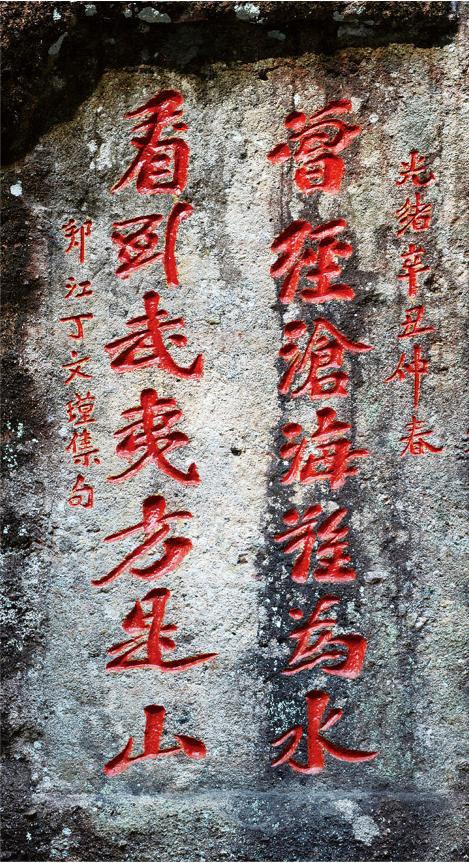 光緒辛丑仲春
曾經滄海難為水
看到武夷方是山
邗江丁文瑾集句